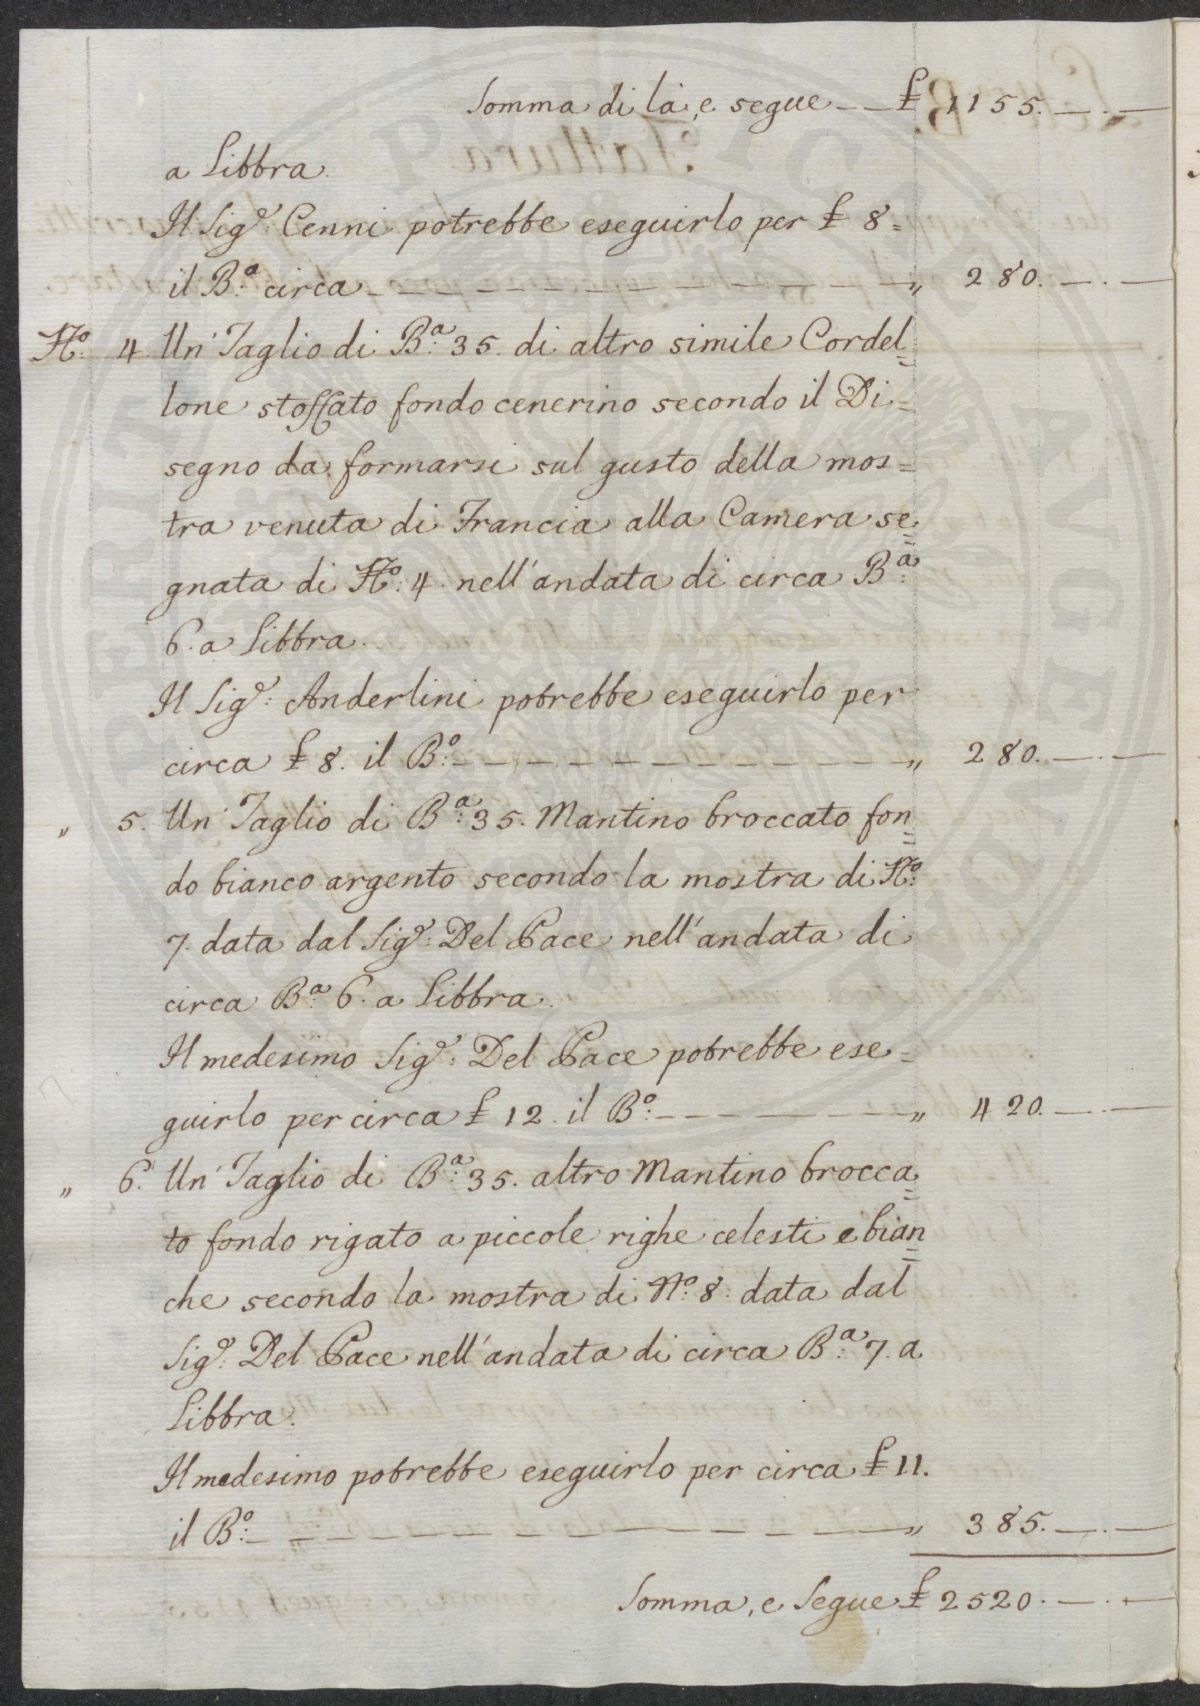 Somma di là, e segue -- £ 1155. -.-
a Libbra.
Il Sig.r Cenni potrebbe eseguirlo per £ 8=
il B.a circa - - - - - - - - - - „ 280. -.-
N.o 4 Un' Taglio di B.a 35. di altro simile Cordel=
lone stoffato fondo cenerino secondo il Di=
segno da formarsi sul gusto della mos=
tra venuta di Francia alla Camera se=
gnata di N.o 4. nell'andata di circa B.a
6. a Libbra.
Il Sig.r Anderlini potrebbe eseguirlo per
circa £ 8. il B.o - - - - - - - - - - „ 280. -.-
„ 5. Un' Taglio di B.a 35. Mantino broccato fon=
do bianco argento secondo la mostra di N.o
7. data dal Sig.r Del Pace nell'andata di
circa B.a 6. a Libbra.
Il medesimo Sig.r Del Pace potrebbe ese=
guirlo per circa £ 12. il B.o - - - - - - „ 420. -.-
„ 6. Un' Taglio di B.a 35. altro Mantino brocca=
to fondo rigato a piccole righe celesti e bian=
che secondo la mostra di N.o 8. data dal
Sig.r Del Pace nell'andata di circa B.a 7. a
Libbra.
Il medesimo potrebbe eseguirlo per circa £ 11.
il B.o - - - - - - - - - - - - „ 385. -.-
Somma, e Segue £ 2520. -.-